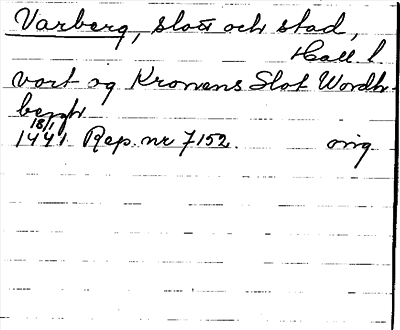 Varberg, slott och stad,
Hall l.
vort og Kronens Slot Wordh-
bergh
18/1
1441 Rep. nr 7152. orig